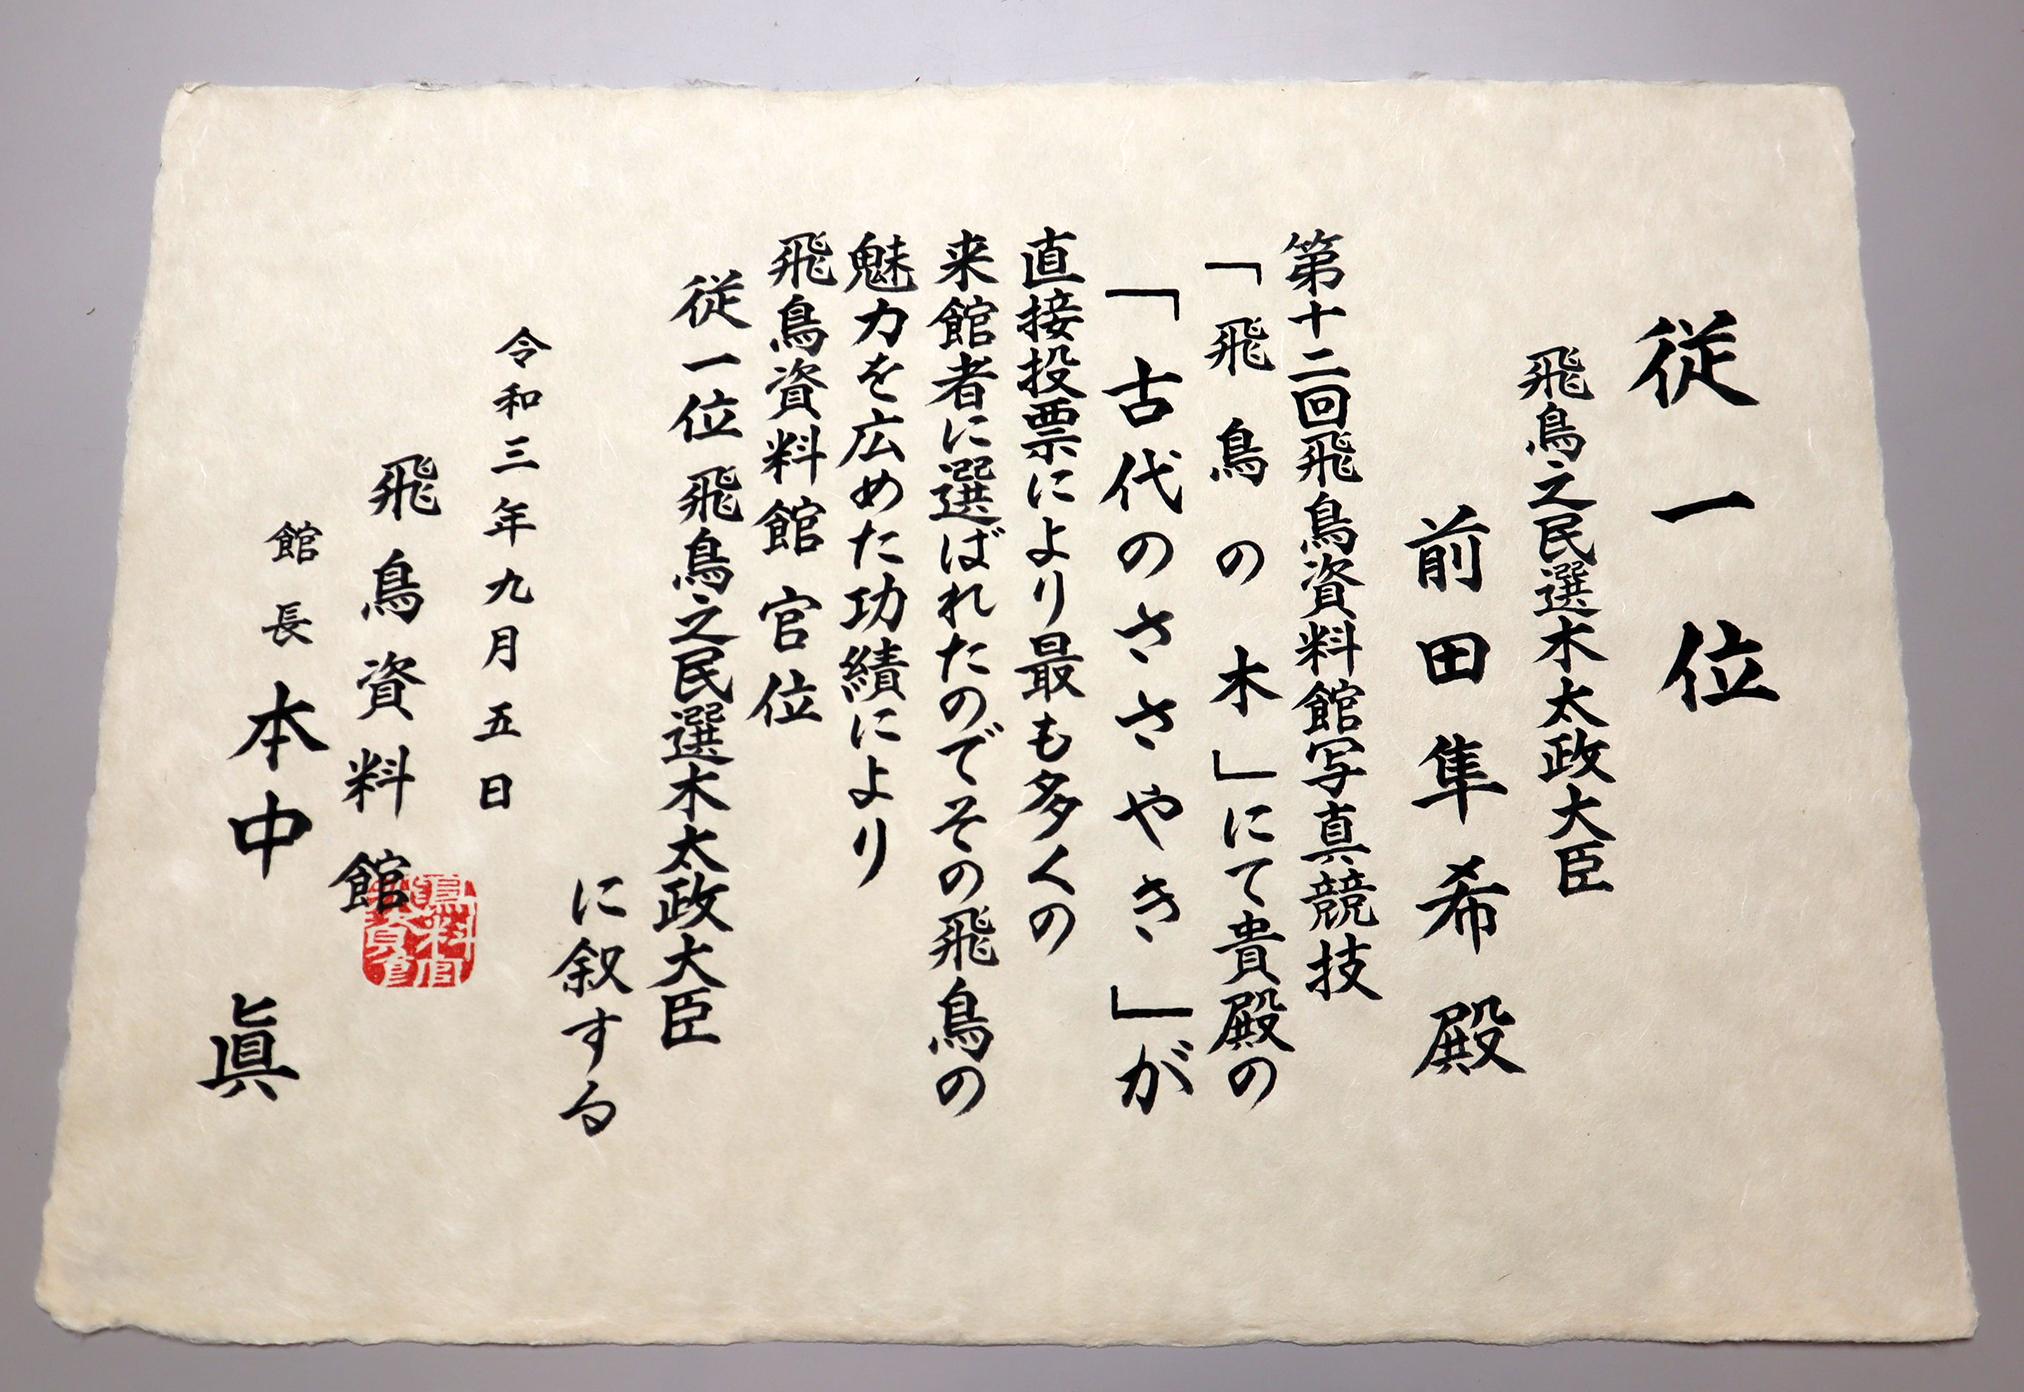 従一位
飛鳥之民選木太政大臣
前田隼希殿
第十二回飛鳥資料館写真競技
「飛鳥の木」にて貴殿の
「古代のささやき」が
直接投票により最も多くの
来館者に選ばれたのでその飛鳥の
魅力を広めた功績により
飛鳥資料館官位
従一位飛鳥之民選木太政大臣
に叙する
令和三年九月五日
飛鳥資料館
館長本中眞